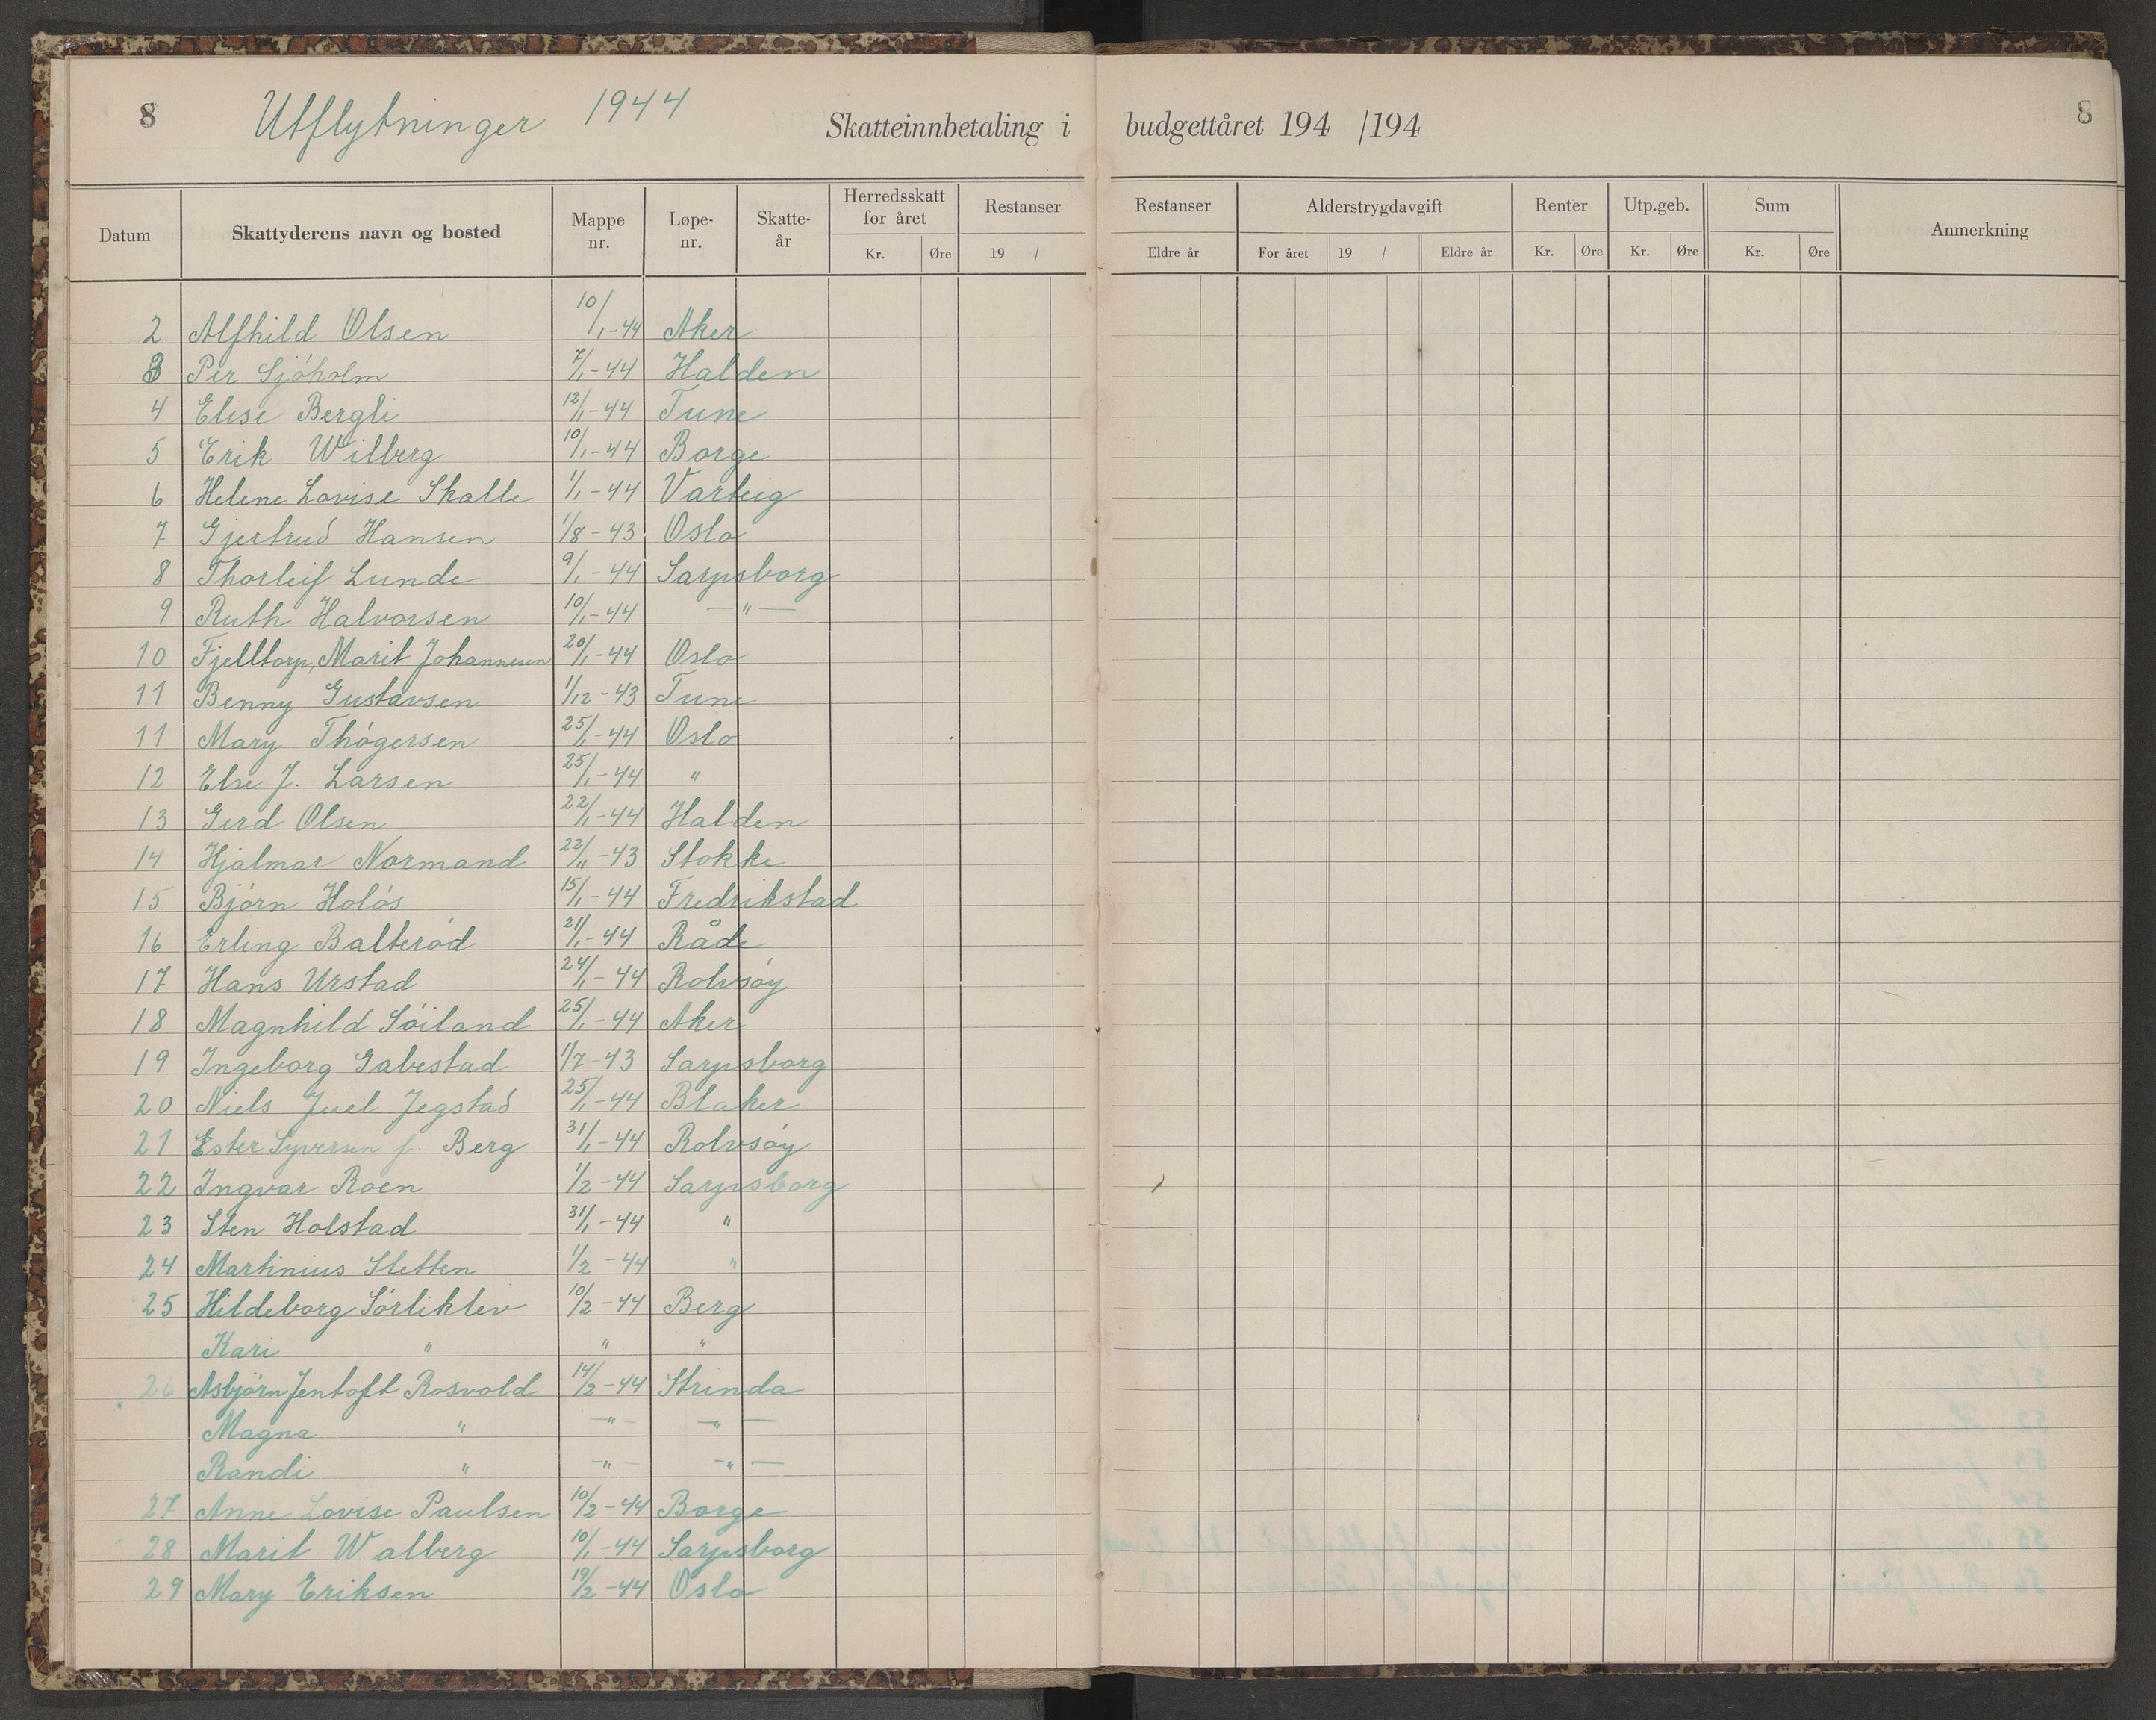 8 Utflytninger 1944 Skatteinnbetaling i budgettåret 194 /194 8
Datum Skattyderens navn og bosted Mappe nr. Løpe-nr. Skatte-år Herredsskatt for året Kr. Øre Restanser 19 / Restanser Eldre år Alderstrygdavgift For året 19 / Eldre år Renter Kr. Øre Utp.geb. Kr. Øre Sum Kr. Øre Anmerkning
2 Alfhild Olsen 10/1-44 Aker
3 Per Sjöholm 7/1-44 Halden
4 Elise Bergli 12/1-44 Tune
5 Erik Wilberg 10/1-44 Borge
6 Helene Lovise Skalle 1/1-44 Varteig
7 Gjertrud Hansen 1/8-43 Oslo
8 Thorleif Lunde 9/1-44 Sarpsborg
9 Ruth Halvorsen 10/1-44 —"—
10 Fjelltorp, Marit Johannesen 20/1-44 Oslo
11 Benny Gustavsen 1/12-43 Tune
11 Mary Thögersen 25/1-44 Oslo
12 Else J. Larsen 25/1-44 "
13 Gerd Olsen 22/1-44 Halden
14 Hjalmar Normand 22/11-43 Stokke
15 Björn Holös 15/1-44 Fredrikstad
16 Erling Balteröd 21/1-44 Råde
17 Hans Urstad 24/1-44 Rolvsöy
18 Magnhild Söiland 25/1-44 Aker
19 Ingeborg Gabestad 1/7-43 Sarpsborg
20 Niels Juel Jegstad 25/1-44 Blaker
21 Ester Syversen f. Berg 31/1-44 Rolvsöy
22 Ingvar Roen 1/2-44 Sarpsborg
23 Sten Holstad 31/1-44 "
24 Martinius Sletten 1/2-44 "
25 Hildeborg Sörliklev 10/2-44 Berg
Kari " " "
26 Asbjörn Jentoft Rosvold 14/2-44 Strinda
Magna " —"— —"—
Randi " —"— —"—
27 Anne Lovise Paulsen 10/2-44 Borge
28 Marit Walberg 10/1-44 Sarpsborg
29 Mary Eriksen 19/2-44 Oslo